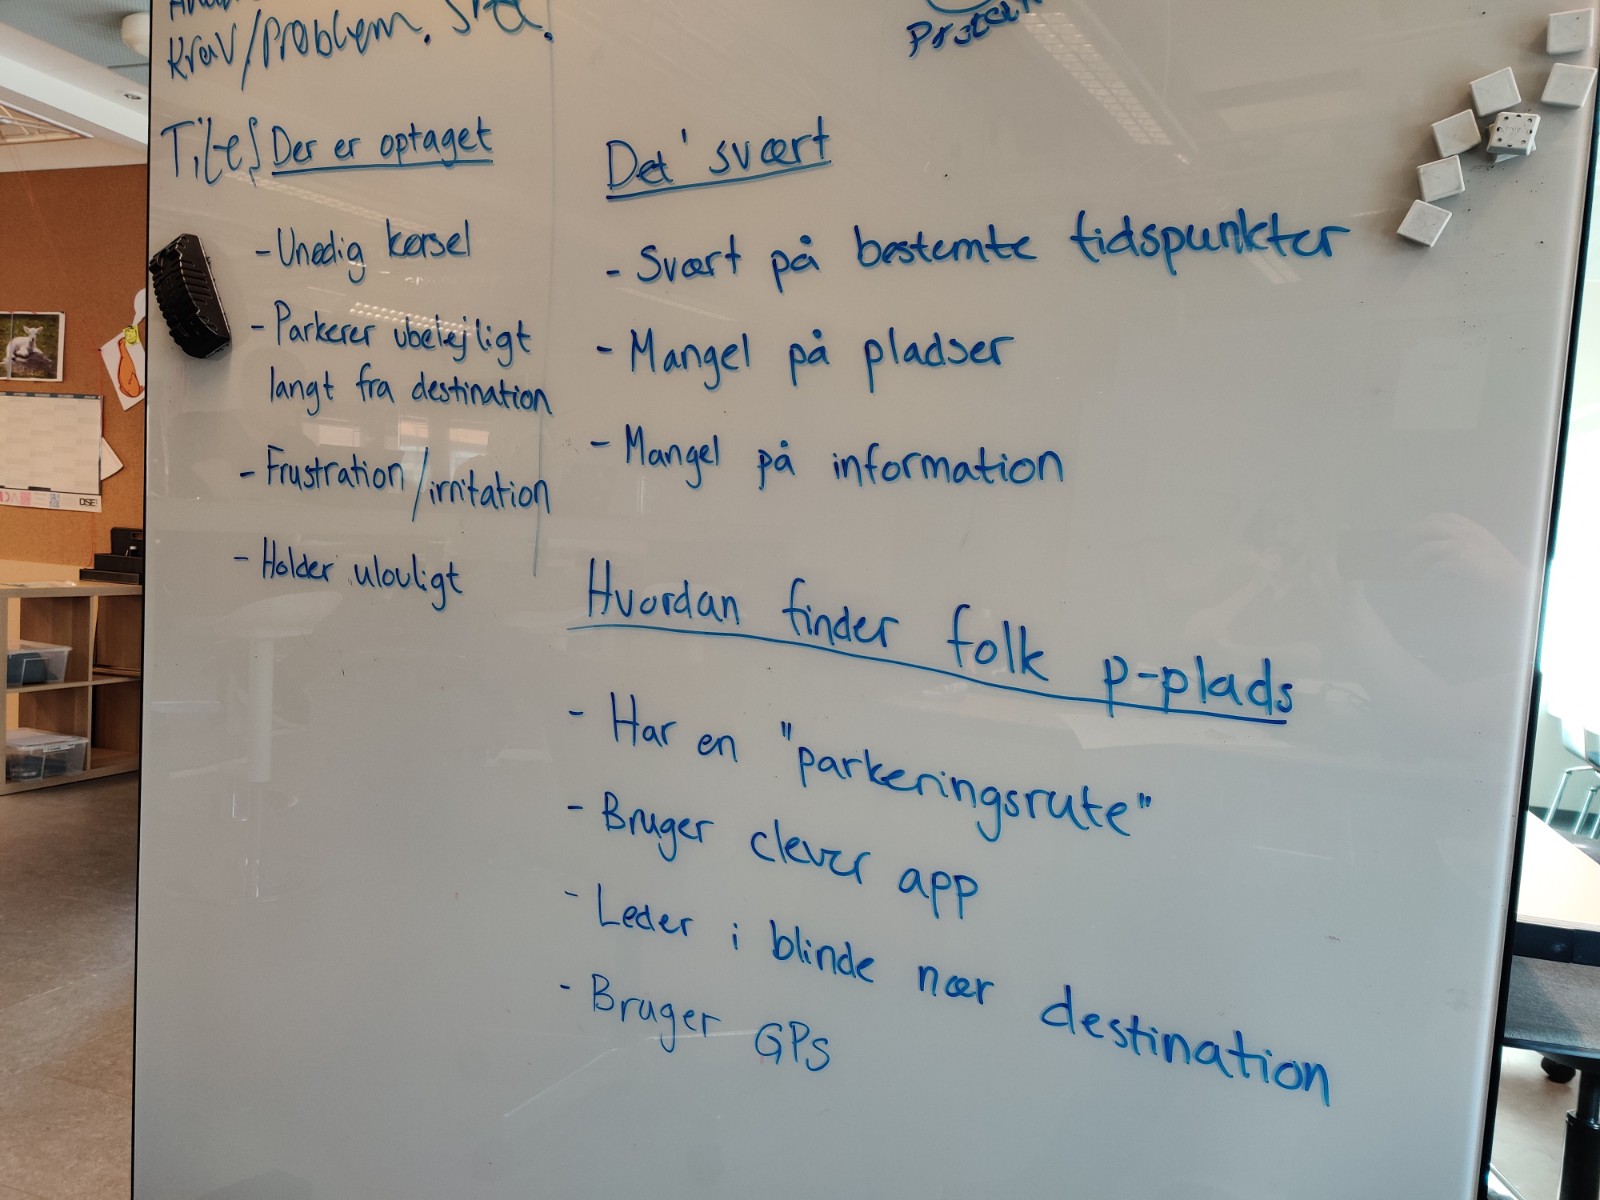 Krav/Problem.
Der er optaget
- Unødig kørsel
- Parkerer ubelejligt
langt fra destination
- Frustration/irritation
- Holder ulovligt
Det' svært
- Svært på bestemte tidspunkter
- Mangel på pladser
- Mangel på information
Hvordan finder folk p-plads
- Har en "parkeringsrute"
- Bruger clever app
- Leder i blinde nær destination
- Bruger GPS